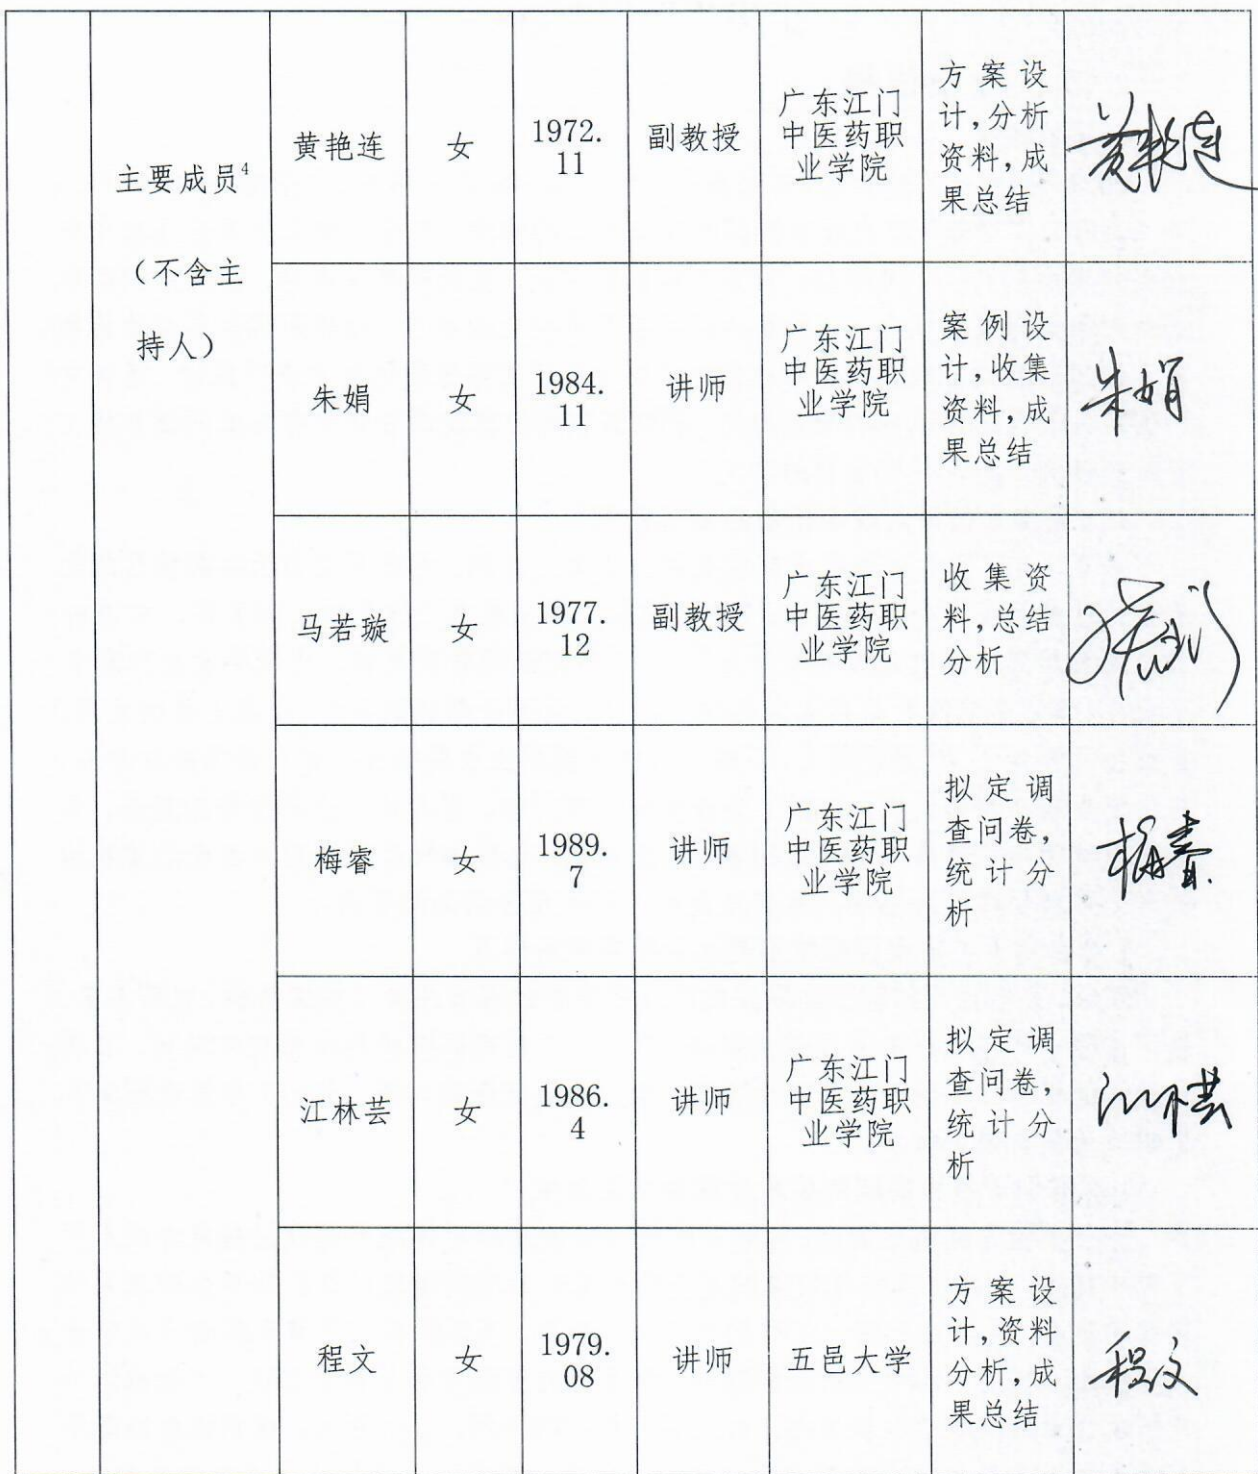 主要成员⁴
（不含主
持人）
黄艳连
女
1972.
11
副教授
广东江门
中医药职
业学院
方案设
计,分析
资料,成
果总结
黄艳连
朱娟
女
1984.
11
讲师
广东江门
中医药职
业学院
案例设
计,收集
资料,成
果总结
朱娟
马若璇
女
1977.
12
副教授
广东江门
中医药职
业学院
收集资
料,总结
分析
梅睿
女
1989.
7
讲师
广东江门
中医药职
业学院
拟定调
查问卷,
统计分
析
梅睿
江林芸
女
1986.
4
讲师
广东江门
中医药职
业学院
拟定调
查问卷,
统计分
析
江林芸
程文
女
1979.
08
讲师
五邑大学
方案设
计,资料
分析,成
果总结
程文